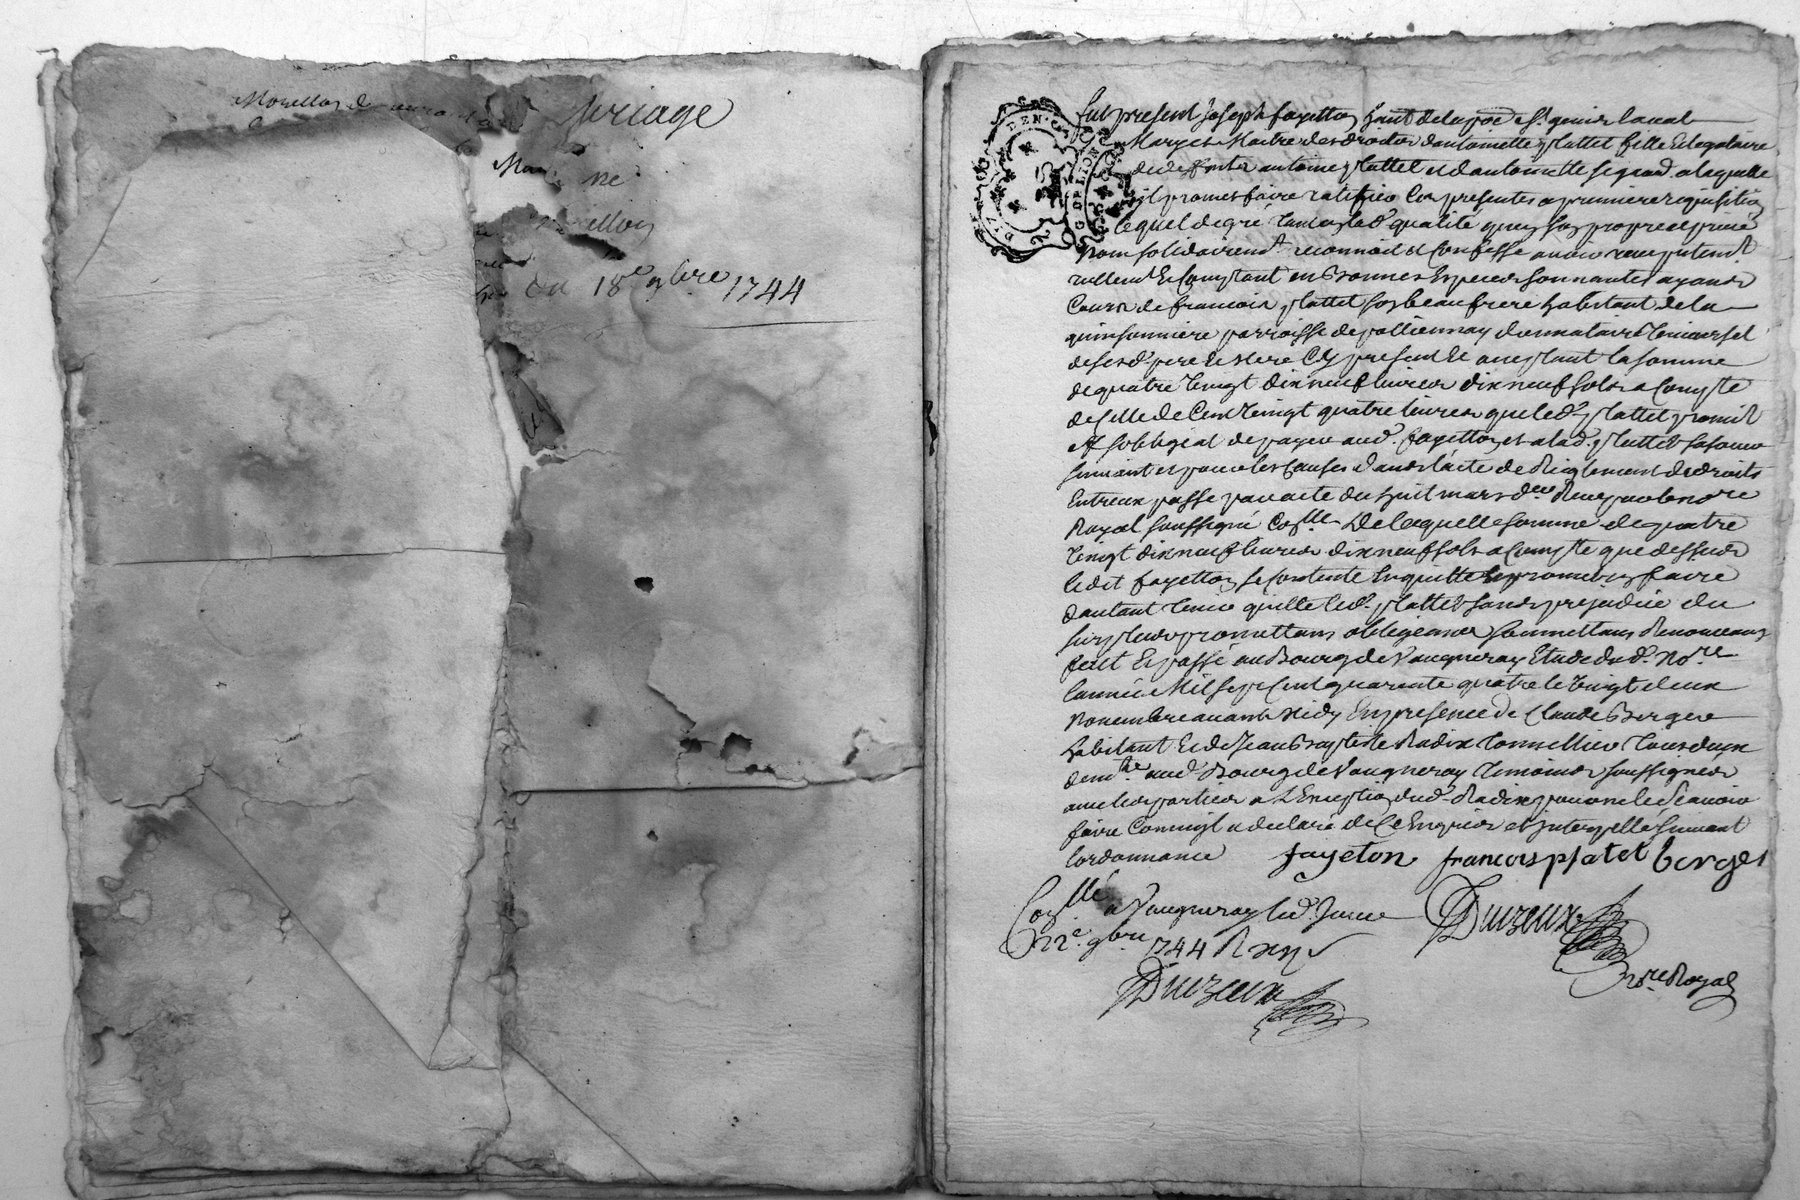 Mariage
ne
Du 18e 9bre 1744
DEN. G.
G DE LION
fut present Joseph fayetton habit de la par. de St genis laval
Mary et Maitre des droits d'antoinette plattet fille et legataire
de deffunts antoine plattet et d'antoinette a laquelle
il promet faire ratiffier Ces presentes a premiere requisition
lequel de gre tant en lad. qualité qu'en son propre et privé
Nom solidairemt. reconnoit et Confesse avoir receu presentemt.
reellemt. et Comptant en Bonnes Especes sonnantes ayants
Cours de francois plattet son beaufrere habitant de la
quinsonniere parroisse de pollionnay donnataire universel
de sesd. pere et Mere Cy present et acceptant la somme
de quatre vingt dix neuf livres dix neuf sols a Compte
de Celle de Cent vingt quatre livres que led. plattet promit
et s'obligeat de payer aud. fayetton et a lad. plattet sa femme
suivant et pour les Causes dans l'acte de Reglement de droits
Entreux passé par acte du huit mars der. Receu par le nore
Royal soussigné Coллé De laquelle somme de quatre
vingt dix neuf livres dix neuf sols a Compte que dessus
ledit fayetton se Contente En quitte Et promet En faire
d'autant tenir quitte led. plattet sans prejudice du
surplus promettans obligeans soumettans Renonceans
fait Et passé au Bourg de Vaugneray Etude dud. Nore
l'année Mil sept Cent quarante quatre le vingt deux
Novembre avant Midy En presence de Claude Berger
habitant Et de Jean Baptiste Radix tonnellier tous deux
demt. aud. Bourg de Vaugneray temoins soussignés
avec les parties a L'Exception dud. Radix pour ne le sçavoir
faire Comm'il a declaré de Ce Enquis et interpellé suivant
l'ordonnance fayeton francois platet berger
Conllé a Vaugneray led. Jour
22e. 9bre 1744 R
Duizeux
nore Royal
Duizeux